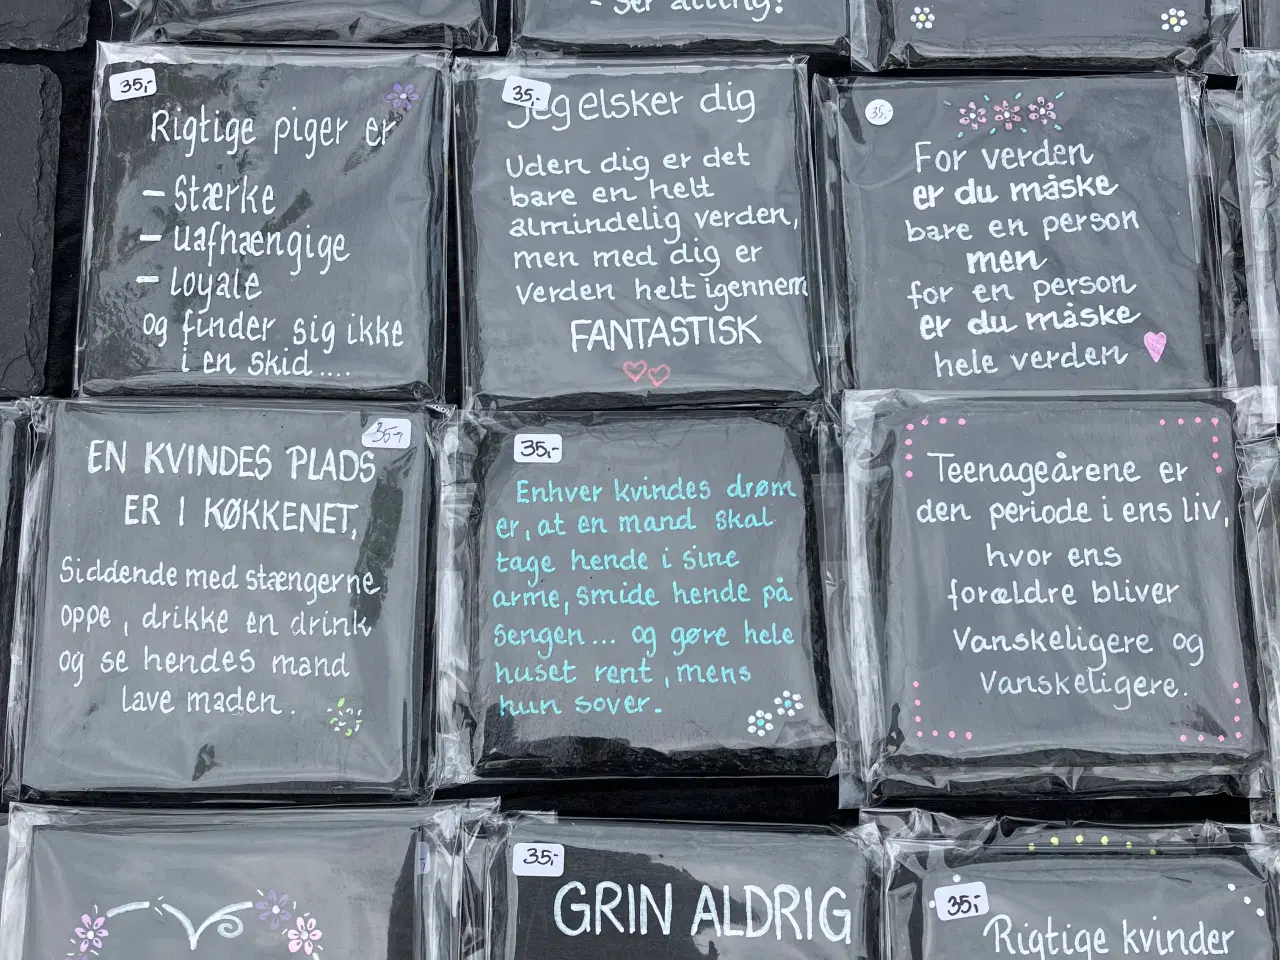 - Ser alting!
35,-
Rigtige piger er
- Stærke
- uafhængige
- Loyale
og finder sig ikke
i en skid....
35,-
Jeg elsker dig
Uden dig er det
bare en helt
almindelig verden,
men med dig er
verden helt igennem
FANTASTISK
35,-
For verden
er du måske
bare en person
men
for en person
er du måske
hele verden
35,-
EN KVINDES PLADS
ER I KØKKENET,
Siddende med stængerne
oppe, drikke en drink
og se hendes mand
lave maden.
35,-
Enhver kvindes drøm
er, at en mand skal
tage hende i sine
arme, smide hende på
sengen... og gøre hele
huset rent, mens
hun sover.
Teenageårene er
den periode i ens liv,
hvor ens
forældre bliver
Vanskeligere og
Vanskeligere.
35,-
GRIN ALDRIG
35,-
Rigtige kvinder